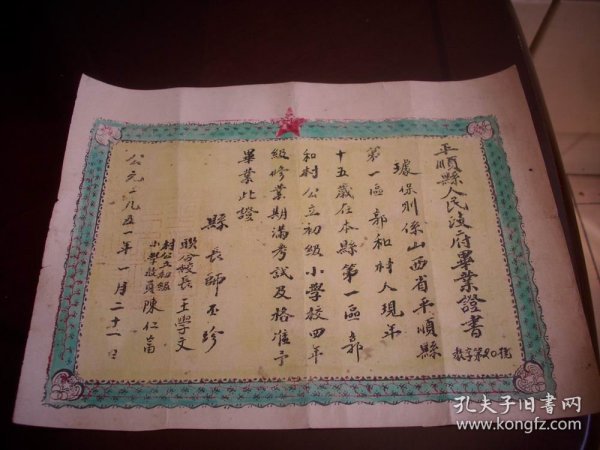 平順縣人民政府畢業證書
教字第 號
據保則係山西省平順縣
第一區郭和村人現年
十五歲在本縣第一區郭
和村公立初級小學校四年
級修業期滿考試及格准予
畢業此證
縣長師丕珍
聯合校長王學文
村公立初級
小學教員陳仁富
公元一九五一年一月二十一日
孔夫子旧書网
www.kongfz.com